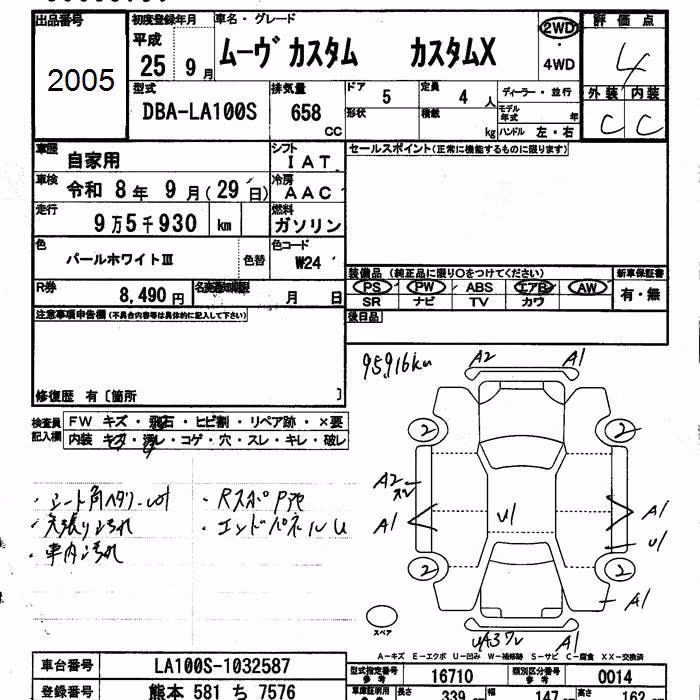 出品番号 初度登録年月 車名・グレード 2WD 評価点
2005 平成 25 9月 ムーヴ カスタム カスタムX 4WD 4
型式 DBA-LA100S 排気量 658 cc ドア 5 定員 4 人 ディーラー・並行 外装 内装
形状 積載 kg モデル年式 年 ハンドル 左・右 C C
車歴 自家用 シフト IAT セールスポイント(正常に機能するものに限ります)
車検 令和 8年 9月(29日) 冷房 AAC
走行 9万5千930 km 燃料 ガソリン
色 パールホワイトⅢ 色替 色コード W24
装備品 (純正品に限り○をつけてください) 新車保証書
R券 8,490円 月 日 PS PW ABS エアB AW 有・無
SR ナビ TV カワ
注意事項申告欄(不具合内容等は具体的に記入して下さい) 後日品
修復歴 有〔箇所 〕
95,916km A2 A1
検査員記入欄 FW キズ・飛石・ヒビ割・リペア跡・×要
内装 キズ・汚レ・コゲ・穴・スレ・キレ・破レ
2 2
・シート角ヘタリ ・RスポP
・天張り汚れ ・エンドパネルU
・車内汚れ
A2 A1 U1 A1 U1
2 2 A1
スペア A1
A-キズ E-エクボ U-凹み W-補修跡 S-サビ C-腐食 XX-交換済
車台番号 LA100S-1032587 型式指定番号 参考 16710 類別区分番号 参考 0014
登録番号 熊本 581 ち 7576 車庫証明用 参考 長さ 339 幅 147 高さ 162